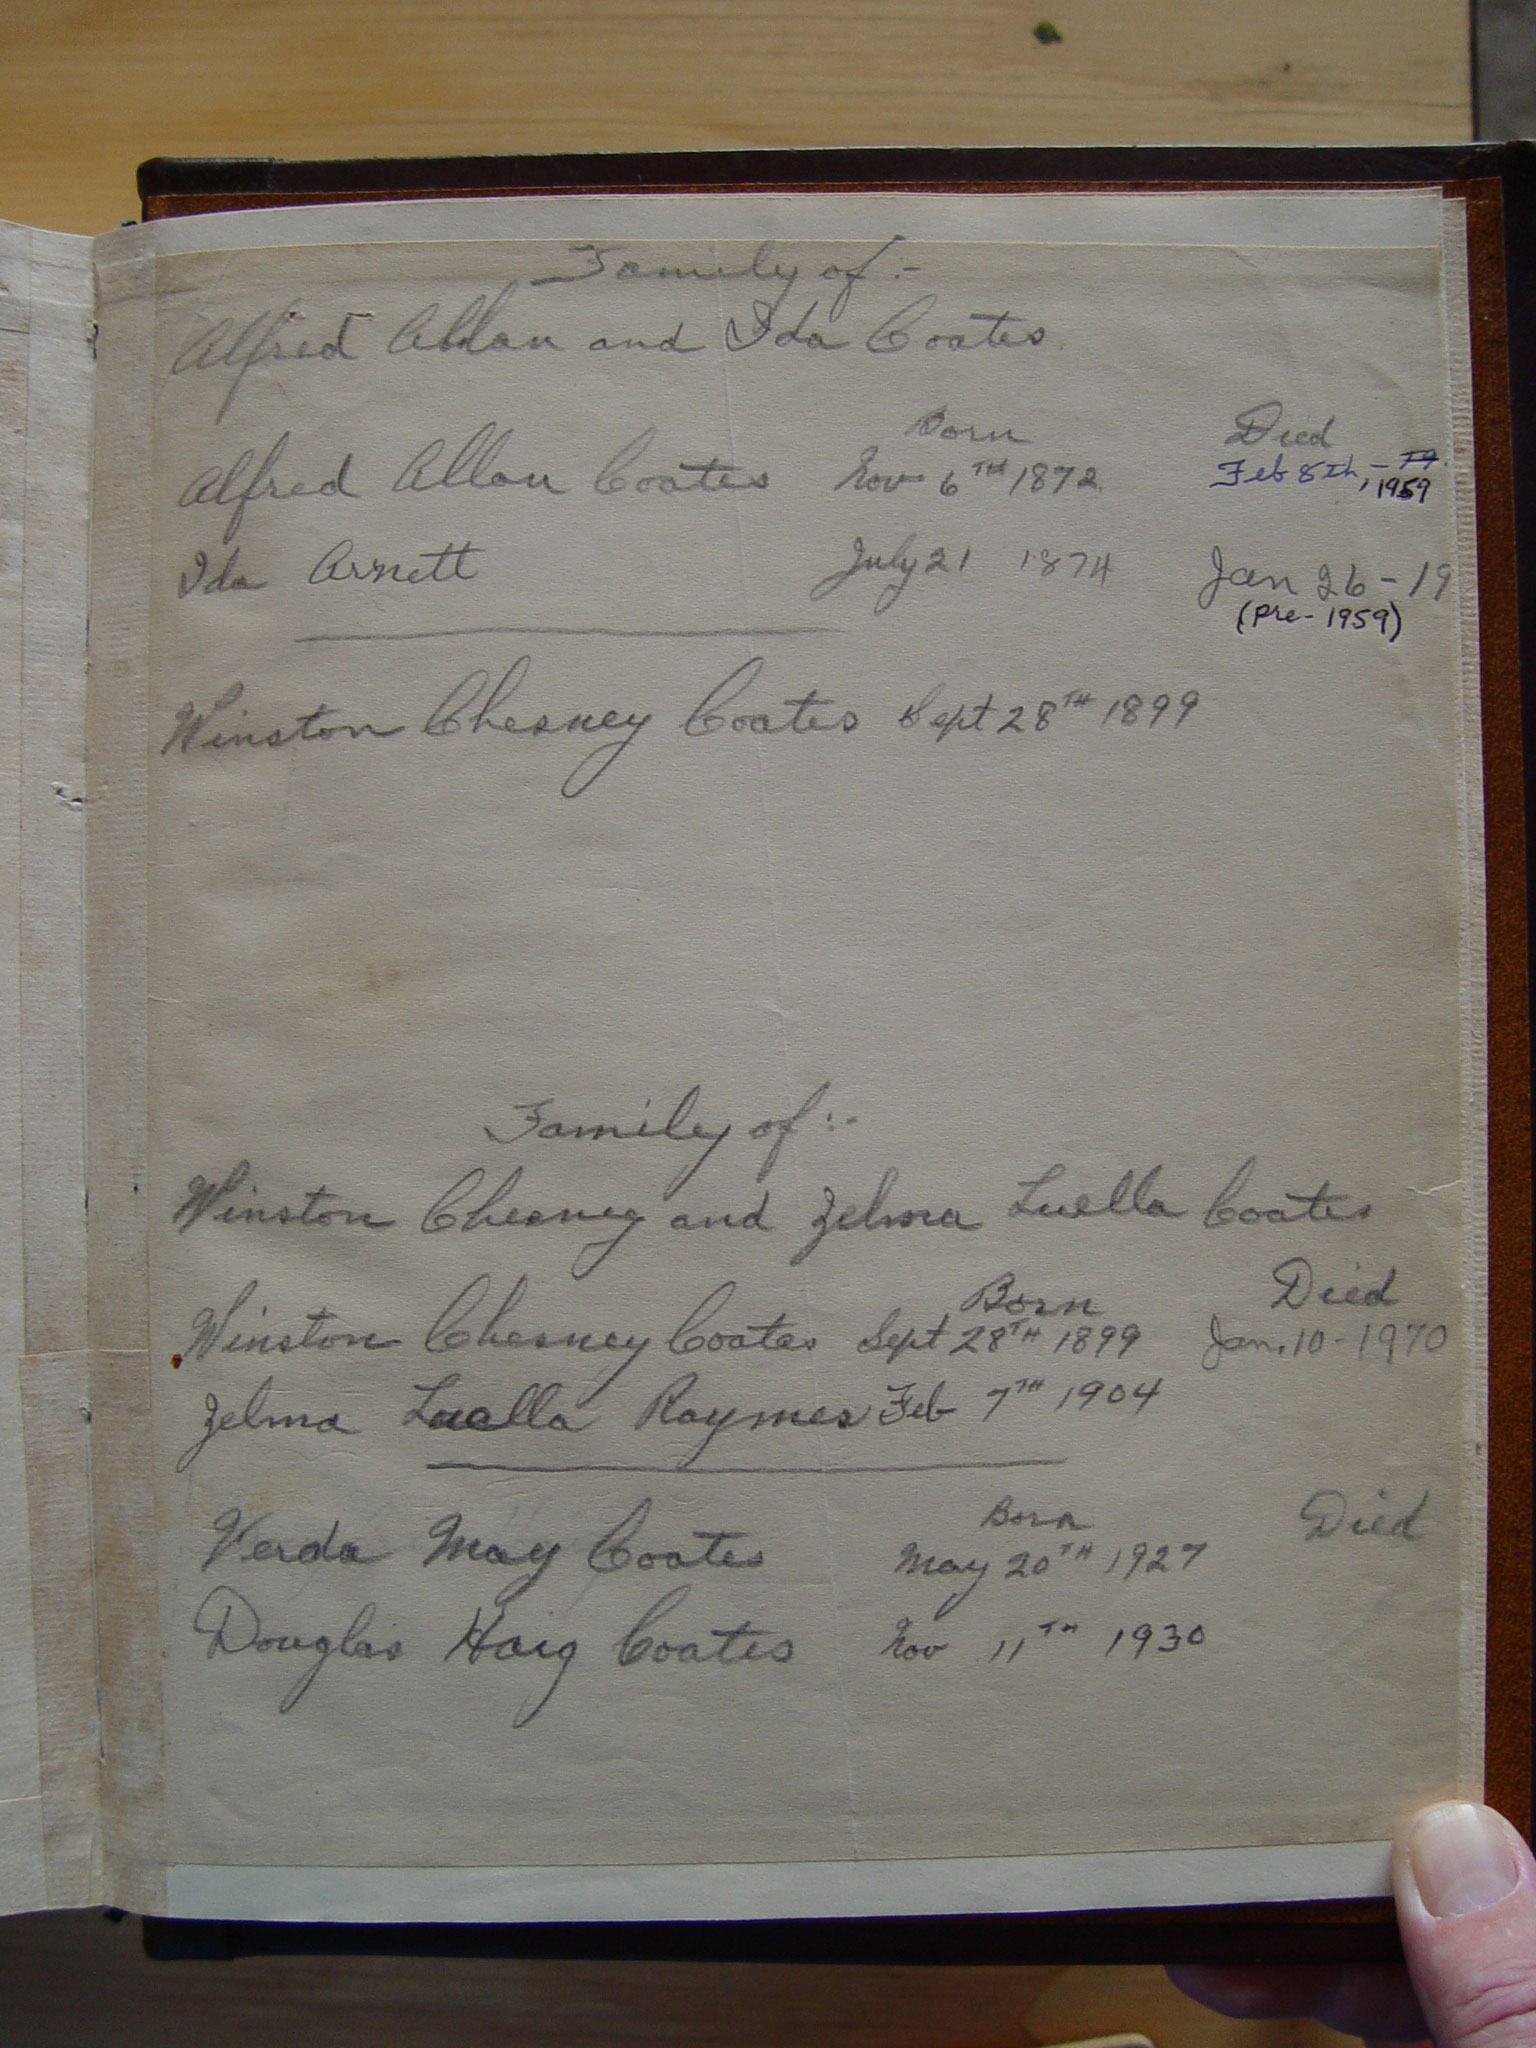 Family of :-
Alfred Allan and Ida Coates.
Born Died
Alfred Allan Coates Nov 6TH 1872 Feb 8th, - 19
1959
Ida Arnett July 21 1874 Jan 26 - 19
(pre - 1959)
Winston Chesney Coates Sept 28TH 1899
Family of :-
Winston Chesney and Zelma Luella Coates
Born Died
Winston Chesney Coates Sept 28TH 1899 Jan. 10 - 1970
Zelma Luella Raymer Feb 7TH 1904
Born Died
Verda May Coates May 20TH 1927
Douglas Haig Coates Nov 11TH 1930